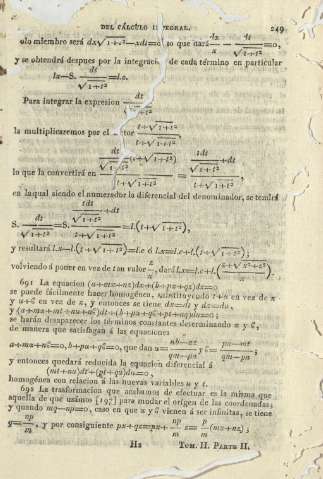 DEL CÁLCULO INTEGRAL. 249
olo miembro será dx√1+t²—xdt=0, lo que dará dx/x — dt/√1+t² =0,
y se obtendrá despues por la integracion de cada término en particular
lx—S. dt/√1+t² =l.c.
Para integrar la expresion dt/√1+t²
la multiplicaremos por el factor t+√1+t² / t+√1+t²,
lo que la convertirá en dt/√1+t² (t+√1+t²) / t+√1+t² = tdt/√1+t² +dt / t+√1+t²,
en la qual siendo el numerador la diferencial del denominador, se tendrá
S. dt/√1+t² =S. tdt/√1+t² +dt / t+√1+t² =l.(t+√1+t²),
y resultará l.x—l.(t+√1+t²)=l.c ó l.x=l.c+l.(t+√1+t²);
volviendo á poner en vez de t su valor z/x, dará l.x=l.c+l.(z+√x²+z² / x).
691 La equacion (a+mx+nz)dx+(b+px+qz)dz=0
se puede fácilmente hacer homogénea, substituyendo t+α en vez de x
y u+β en vez de z, y entonces se tiene dx=dt y dz=du,
y (a+mα+mt+nu+nβ)dt+(b+pα+qβ+pt+qu)du=0;
se harán desaparecer los términos constantes determinando α y β,
de manera que satisfagan á las equaciones
a+mα+nβ=0, b+pα+qβ=0, que dan α= nb—aq / qm—np y β= pa—mb / qm—pn;
y entonces quedará reducida la equacion diferencial á
(mt+nu)dt+(pt+qu)du=0,
homogénea con relacion á las nuevas variables u y t.
692 La trasformacion que acabamos de efectuar es la misma que
aquella de que usamos [197] para mudar el orígen de las coordenadas;
y quando mq—np=0, caso en que α y β vienen á ser infinitas, se tiene
q= np/m, y por consiguiente px+qz=px+ np/m z= p/m (mx+nz);
H2 TOM. II. PARTE II.